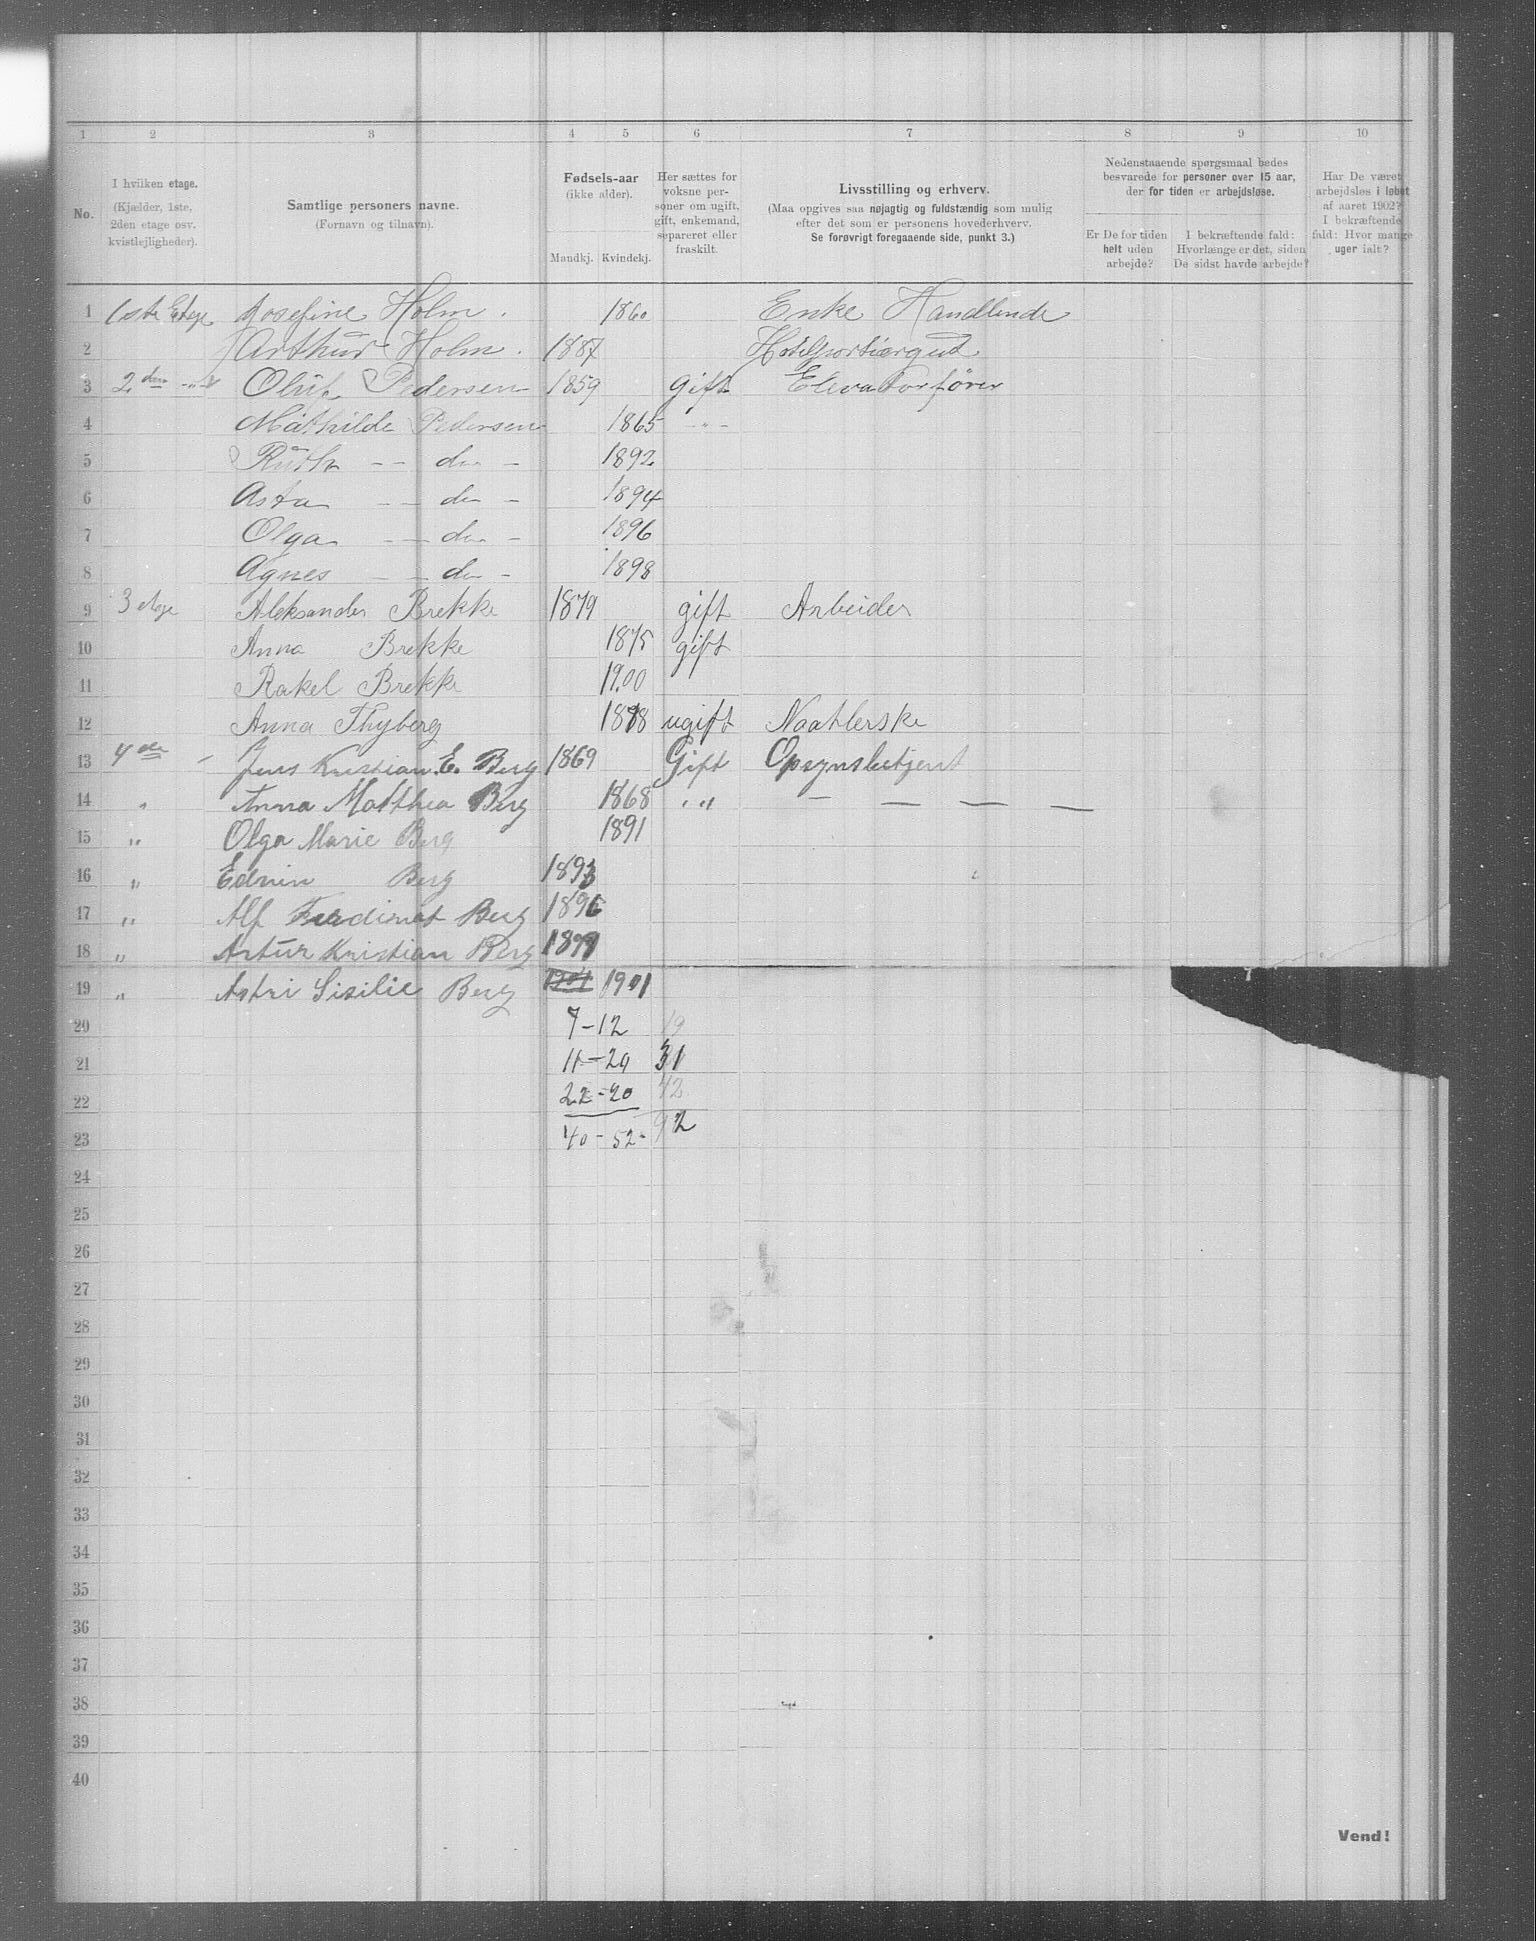 1 2 3 4 5 6 7 8 9 10
No.
I hvilken etage.
(Kjælder, 1ste,
2den etage osv.
kvistlejligheder).
Samtlige personers navne.
(Fornavn og tilnavn).
Fødsels-aar
(ikke alder).
Mandkj. Kvindekj.
Her sættes for
voksne per-
soner om ugift,
gift, enkemand,
separeret eller
fraskilt.
Livsstilling og erhverv.
(Maa opgives saa nøjagtig og fuldstændig som mulig
efter det som er personens hovederhverv.
Se forøvrigt foregaaende side, punkt 3.)
Nedenstaaende spørgsmaal bedes
besvarede for personer over 15 aar,
der for tiden er arbejdsløse.
Er De for tiden
helt uden
arbejde?
I bekræftende fald:
Hvorlænge er det, siden
De sidst havde arbejde?
Har De været
arbejdsløs i løbet
af aaret 1902?
I bekræftende
fald: Hvor mange
uger ialt?
1 1ste Etage Josefine Holm. 1860 Enke Handlende
2 Arthur Holm. 1887 Hotelportiergut
3 2den -"- Oluf Pedersen 1859 Gift Elevatorfører
4 Mathilde Pedersen 1865 -"-
5 Ruth -- do -- 1892
6 Asta -- do -- 1894
7 Olga -- do -- 1896
8 Agnes -- do -- 1898
9 3 etage Aleksander Brekke 1879 gift Arbeider
10 Anna Brekke 1875 gift
11 Rakel Brekke 1900
12 Anna Thyberg 1878 ugift Naatlerske
13 4de - Jens Kristian E. Berg 1869 Gift Opsynsbetjent
14 " Anna Matthea Berg 1868 " " — — — —
15 " Olga Marie Berg 1891
16 " Edvin Berg 1893
17 " Alf Ferdinat Berg 1896
18 " Artur Kristian Berg 1899
19 " Astri Sisilie Berg 1901 1901
20 7-12 19
21 11-20 31
22 22-20 42
23 40-52- 92
24
25
26
27
28
29
30
31
32
33
34
35
36
37
38
39
40
Vend!